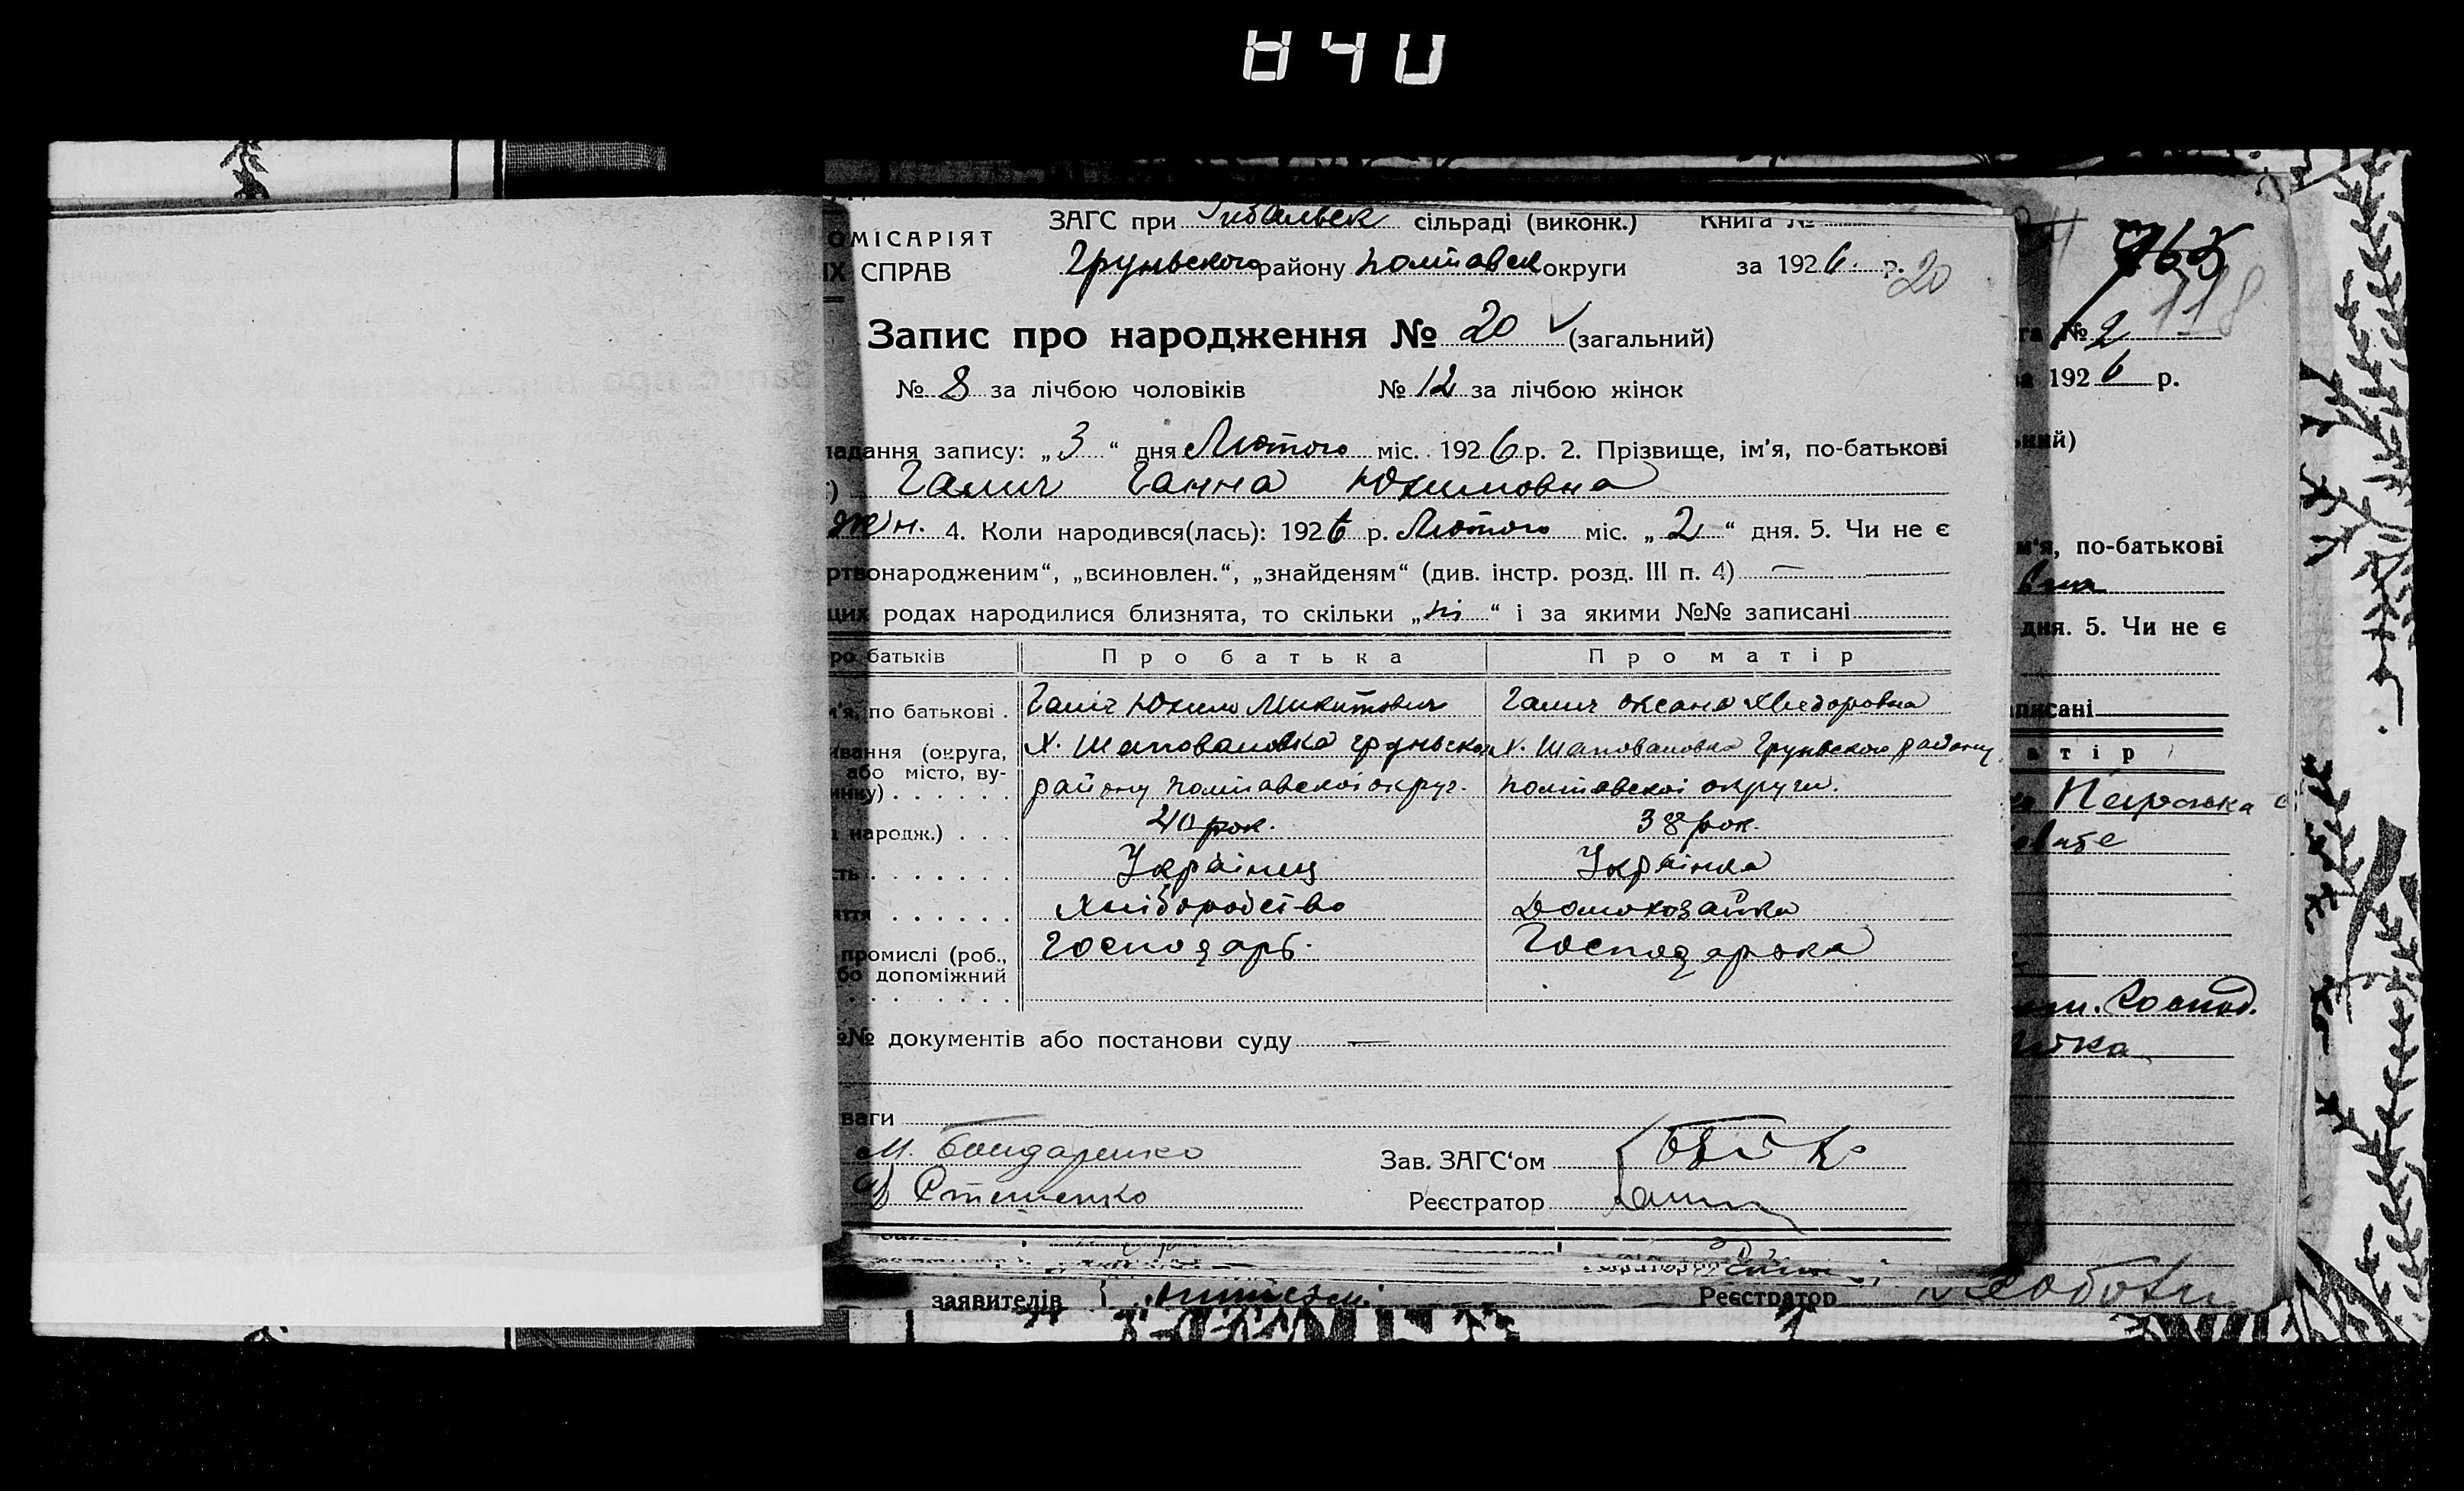 840
ЗАГС при сільраді (виконк.) Книга №
ОМІСАРІЯТ
Груньского району Полтавск округи за 1926 р. 20
ІХ СПРАВ
Запис про народження № 20 (загальний)
№ 8 за лічбою чоловіків № 12 за лічбою жінок
ладання запису: „3“ дня Лютого міс. 1926 р. 2. Прізвище, ім'я, по-батькові
Галич Ганна Юхимовна
жін. 4. Коли народився(лась): 1926 р. Лютого міс. „2“ дня. 5. Чи не є
ртвонародженим“, „всиновлен.“, „знайденям“ (див. інстр. розд. III п. 4) —
цих родах народилися близнята, то скільки „ні“ і за якими №№ записані
ро батьків Про батька Про матір
м'я, по батькові . Галич Юхим Микитович Галич Оксана Хведоровна
ивання (округа, Х. Шаповаловка Груньского Х. Шаповаловка Груньского району
або місто, ву-
инку) . . . . . . району Полтавскоі округ. Полтавскоі округи.
народж.) . . . 40 рок. 38 рок.
сть . . . . . . . Українец Українка
яття . . . . . . Хліборобство Домохозайка
промислі (роб., Господарь. Господарька
бо допоміжний
№№ документів або постанови суду —
ваги
М. Бондаренко Зав. ЗАГС'ом
Стеценко Реєстратор
заявителів Реєстратор
763
118
га № 2
за 1926 р.
ьний)
м'я, по-батькові
вна
дня. 5. Чи не є
аписані
атір
Параска
Господ.